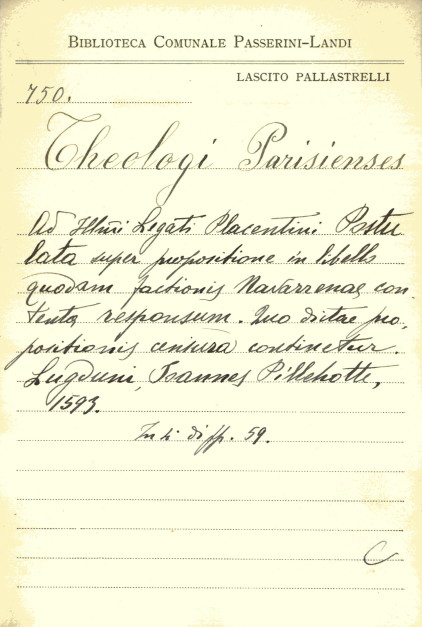 BIBLIOTECA COMUNALE PASSERINI-LANDI
LASCITO PALLASTRELLI
750.
Theologi Parisienses
Ad Illmi Legati Placentini Postu
lata super propositione in libello
quodam factionis Navarrenae con
tenta responsum. Quo dictae pro,
positionis censura continetur.
Lugduni, Joannes Pillehotte,
1593.
In 4 di pp. 59.
C